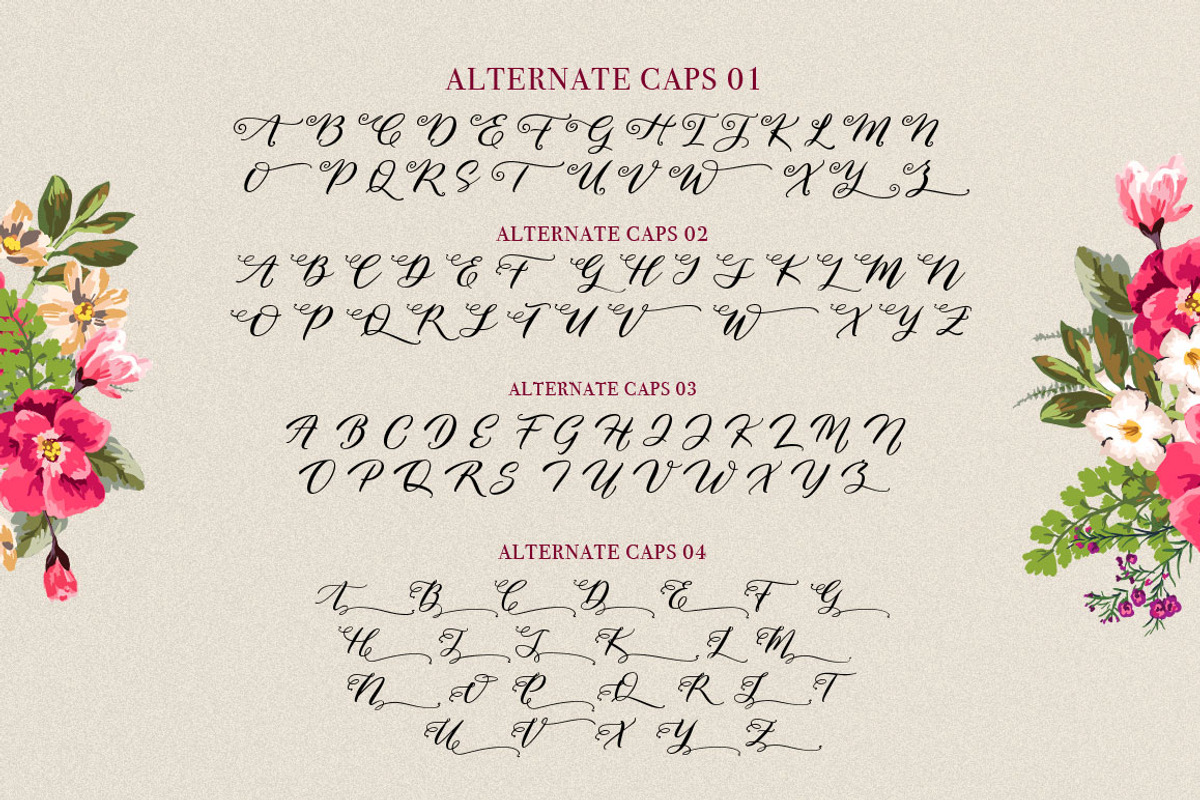 ALTERNATE CAPS 01
A B C D E F G H I J K L M N
O P Q R S T U V W X Y Z
ALTERNATE CAPS 02
A B C D E F G H I J K L M N
O P Q R S T U V W X Y Z
ALTERNATE CAPS 03
A B C D E F G H I J K L M N
O P Q R S T U V W X Y Z
ALTERNATE CAPS 04
A B C D E F G
H I J K L M
N O P Q R S T
U V X Y Z